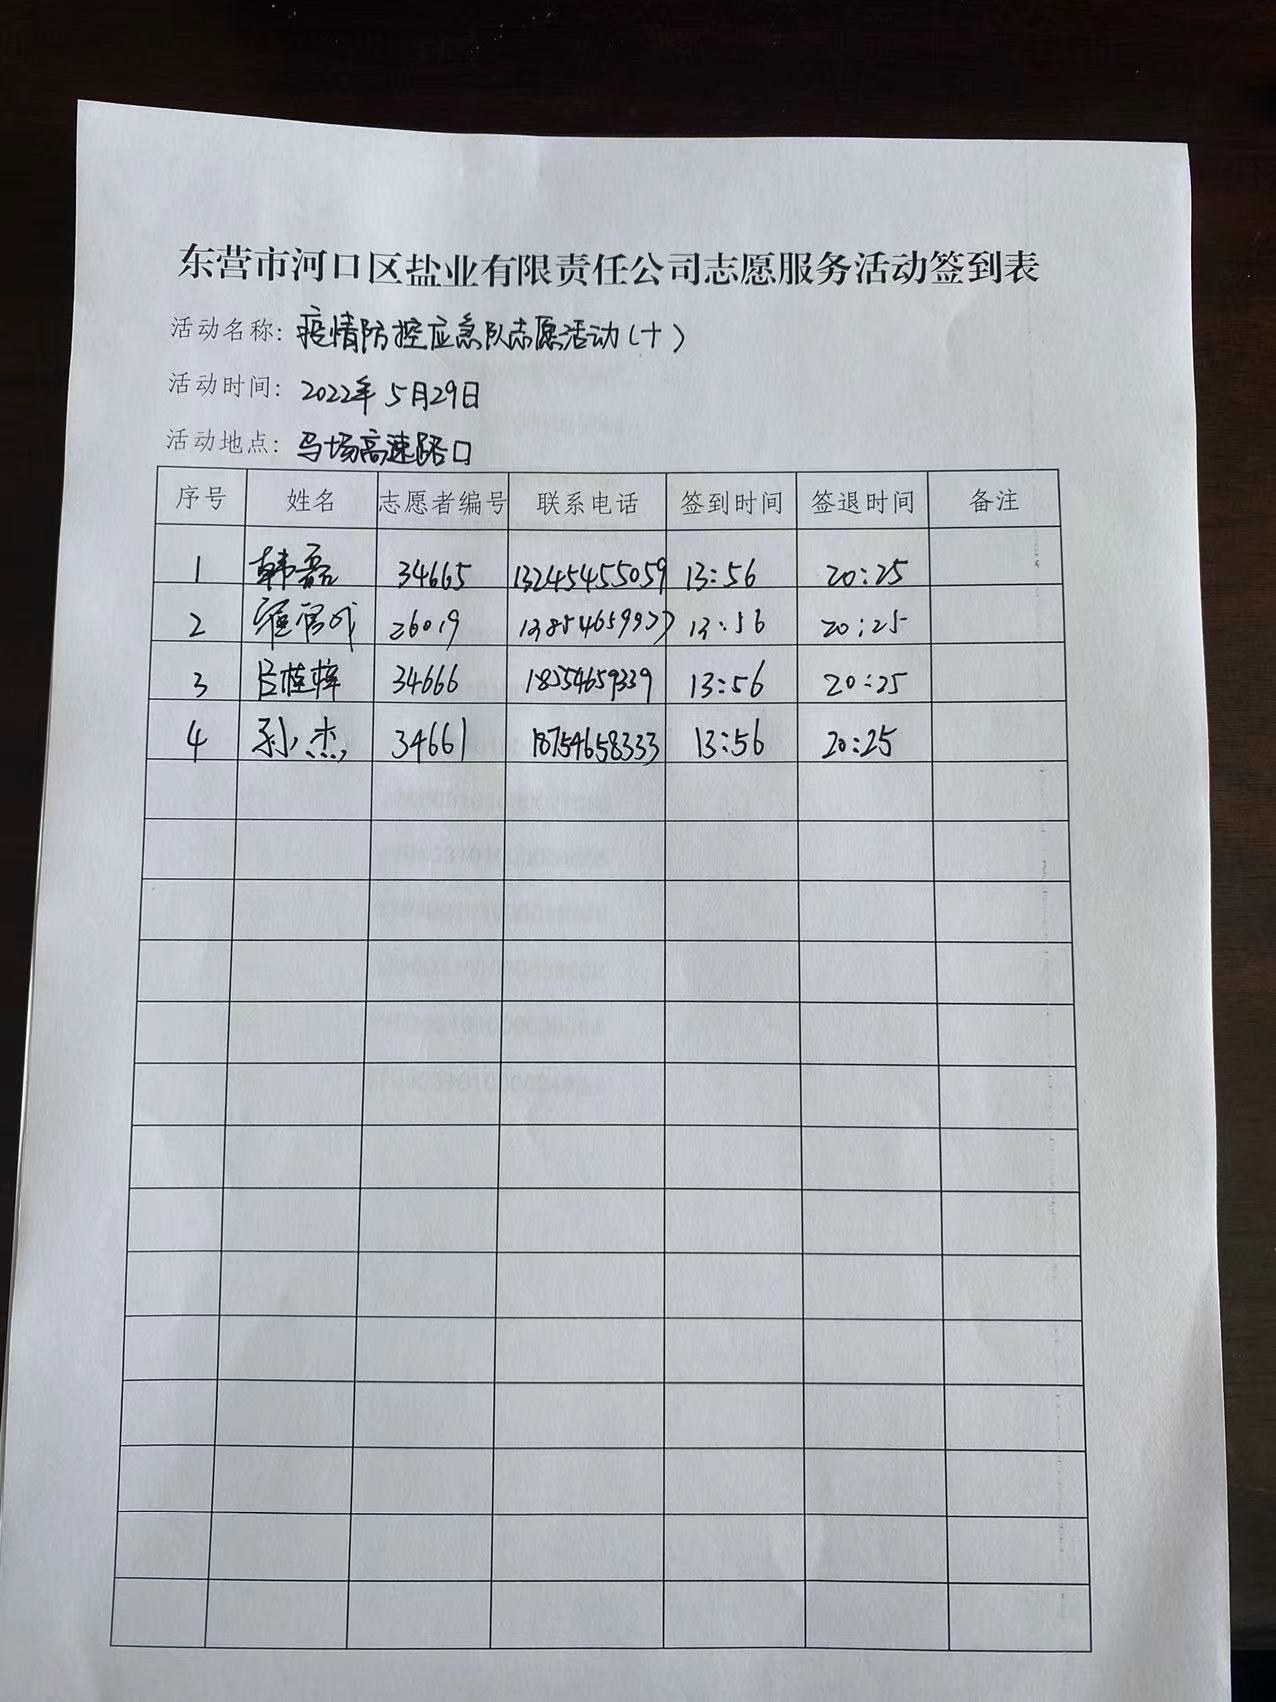 东营市河口区盐业有限责任公司志愿服务活动签到表
活动名称: 疫情防控应急队志愿活动(十)
活动时间: 2022年5月29日
活动地点: 马场高速路口
序号 姓名 志愿者编号 联系电话 签到时间 签退时间 备注
1 韩磊 34665 13245455059 13:56 20:25
2 26019 13:56 20:25
3 34666 18254659339 13:56 20:25
4 孙杰 34661 18754658333 13:56 20:25